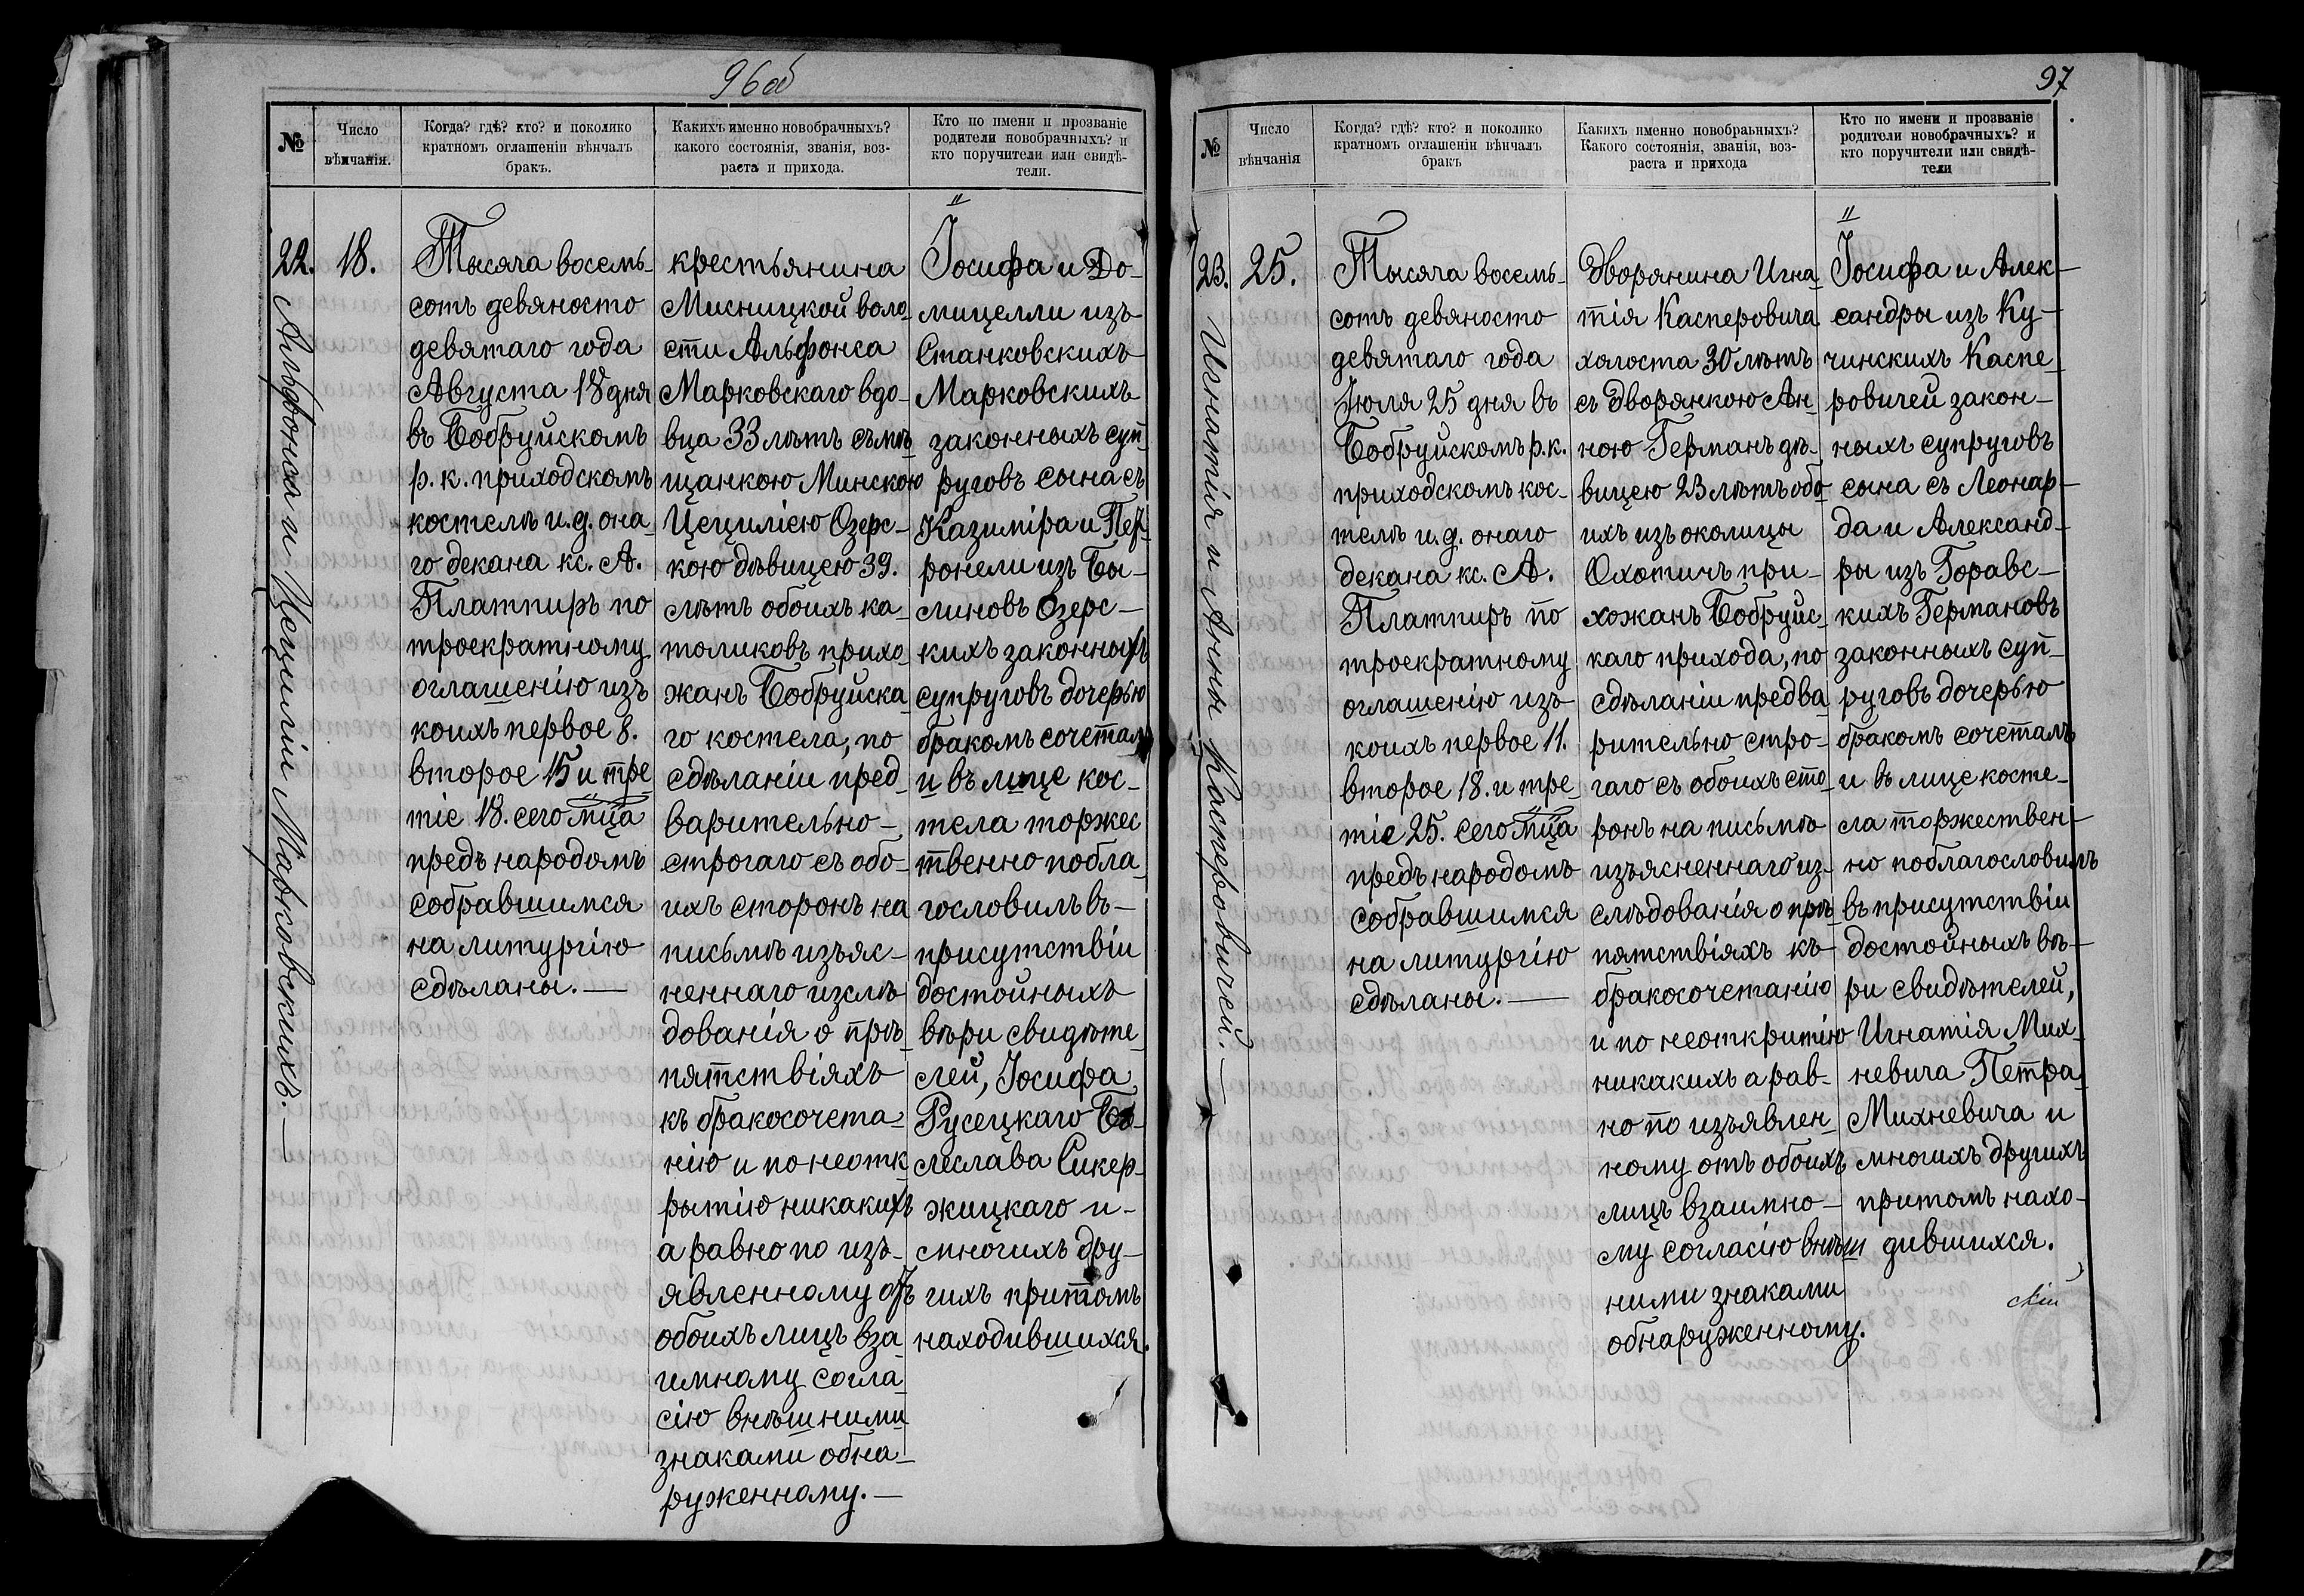 96об
№
Число
вѣнчанія.
Когда? гдѣ? кто? и поколико
кратномъ оглашеніи вѣнчалъ
бракъ.
Какихъ именно новобрачныхъ?
какого состоянія, званія, воз-
раста и прихода.
Кто по имени и прозваніе
родители новобрачныхъ? и
кто поручители или свидѣ-
тели.
22.
Альфонса и Цециліи Марковскихъ.—
18.
Тысяча восемь-
сотъ девяносто
девятаго года
Августа 18 дня
въ Бобруйскомъ
р. к. приходскомъ
костелѣ и. д. она-
го декана кс. А.
Платпиръ по
троекратному
оглашенію изъ
коихъ первое 8.
второе 15 и тре
тіе 18. сего мца
предъ народомъ
собравшимся
на литургію
сдѣланы.—
крестьянина
Мисницкой воло-
сти Альфонса
Марковскаго вдо-
вца 33 лѣтъ съ мѣ
щанкою Минскою
Цециліею Озерс-
кою дѣвицею 39.
лѣтъ обоихъ ка-
толиковъ прихо-
жанъ Бобруйска-
го костела, по
сдѣланіи пред-
варительно-
строгаго съ обо-
ихъ сторонъ на
письмѣ изъяс-
неннаго изслѣ-
дованія о прѣ-
пятствіяхъ
къ бракосочета-
нію и по неотк-
рытію никакихъ
а равно по изъ-
явленному отъ
обоихъ лицъ вза-
имному согла-
сію внѣшними
знаками обна-
руженному.—
Іосифа и До-
мицелли изъ
Станковскихъ
Марковскихъ
законныхъ суп-
руговъ сына съ
Казиміра и Пет-
ронели изъ Бы-
линовъ Озерс-
кихъ законныхъ
супруговъ дочерью
бракомъ сочеталъ
и въ лице кос-
тела торжес
твенно побла-
гословилъ въ-
присутствіи
достойныхъ
вѣри свидѣте-
лей, Іосифа
Русецкаго Бо-
леслава Сикер-
жицкаго и-
многихъ дру-
гихъ притомъ
находившихся.
97
№
Число
вѣнчанія
Когда? гдѣ? кто? и поколико
кратномъ оглашеніи вѣнчалъ
бракъ
Какихъ именно новобраьныхъ?
Какого состоянія, званія, воз-
раста и прихода
Кто по имени и прозваніе
родители новобрачныхъ? и
кто поручители или свидѣ-
тели
23.
Игнатія и Анны Касперовичей.—
25.
Тысяча восемь-
сотъ девяносто
девятаго года
Іюля 25 дня въ
Бобруйскомъ р. к.
приходскомъ кос-
телѣ и. д. онаго
декана кс. А.
Платпиръ по
троекратному
оглашенію изъ
коихъ первое 11.
второе 18. и тре-
тіе 25. сего мца
предъ народомъ
собравшимся
на литургію
сдѣланы.—
Дворянина Игна-
тія Касперовича
холоста 30 лѣтъ
съ дворянкою Ан-
ною Германъ дѣ-
вицею 23 лѣтъ обо-
ихъ изъ околицы
Охотичъ при-
хожанъ Бобруйс-
каго прихода, по
сдѣланіи предва-
рительно стро-
гаго съ обоихъ сто-
ронъ на письмѣ
изъясненнаго из-
слѣдованія о прѣ-
пятствіяхъ къ-
бракосочетанію
и по неоткритію
никакихъ а рав-
но по изъявлен-
ному отъ обоихъ
лицъ взаимно-
му согласію внѣш
ними знаками
обнаруженному.
Іосифа и Алек-
сандры изъ Ку-
чинскихъ Каспе-
ровичей закон-
ныхъ супруговъ
сына съ Леонар-
да и Александ-
ры изъ Горавс-
кихъ Германовъ
законныхъ суп-
руговъ дочерью
бракомъ сочеталъ
и въ лице косте-
ла торжествен-
но поблагословилъ
въ присутствіи
достойныхъ вѣ-
ри свидѣтелей,
Игнатія Мих-
невича Петра
Михневича и
многихъ другихъ
притомъ нахо-
дившихся.